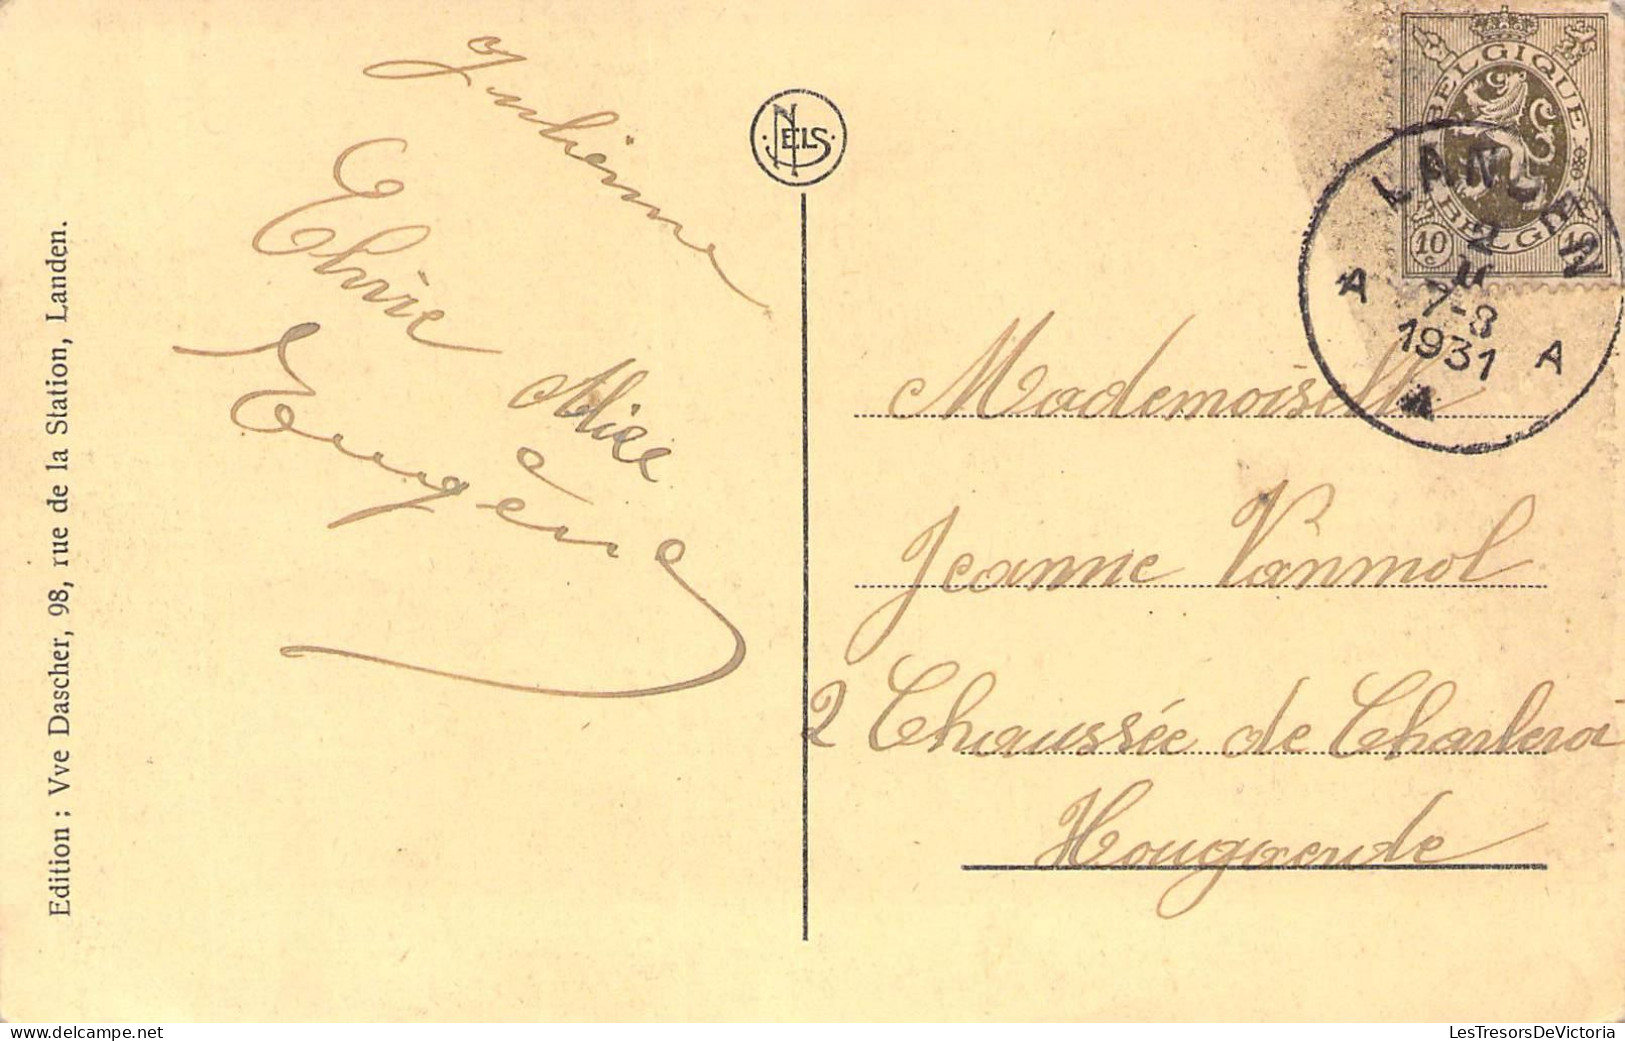 Edition ; Vve Dascher, 98, rue de la Station, Landen.
Julienne
Alice
Eugène
NELS
BELGIQUE
BELGIË
10 c 10 c
LANDEN
2
7-8
1931
A A
Mademoiselle
Jeanne Vanmol
2 Chaussée de Charleroi
Hougaerde
www.delcampe.net
LesTresorsDeVictoria